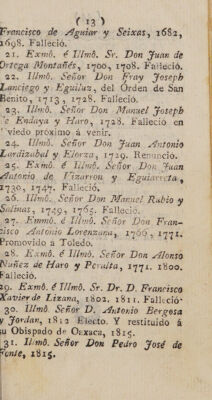 ( 13 )
Francisco de Aguiar y Seixas, 1682,
1698. Falleció.
21. Exmô. é Illmô. Sr. Don Juan de
Ortega Montañés, 1700, 1708. Falleció.
22. Illmô. Señor Don Fray Joseph
Lanciego y Eguiluz, del Órden de San
Benito, 1713, 1728. Falleció.
23. Illmô. Señor Don Manuel Joseph
de Endaya y Haro, 1728. Falleció en
viedo próximo á venir.
24. Illmô. Señor Don Juan Antonio
Lardizabal y Elorza, 1729. Renunció.
25. Exmô. é Illmô. Señor Don Juan
Antonio de Vizarron y Eguiarreta,
1730, 1747. Falleció.
26. Illmô. Señor Don Manuel Rubio y
Salinas, 1749, 1765. Falleció.
27. Exmmô. é Illmô. Señor Don Fran-
cisco Antonio Lorenzana, 1766, 1771.
Promovido á Toledo.
28. Exmô. é Illmô. Señor Don Alonso
Nuñez de Haro y Peralta, 1771. 1800.
Falleció.
29. Exmô. é Illmô. Sr. Dr. D. Francisco
Xavier de Lizana, 1802. 1811. Falleció
30. Illmô. Señor D. Antonio Bergosa
y Jordan, 1812 Electo. Y restituido á
su Obispado de Oaxaca, 1815.
31. Illmô. Señor Don Pedro José de
Fonte, 1815.